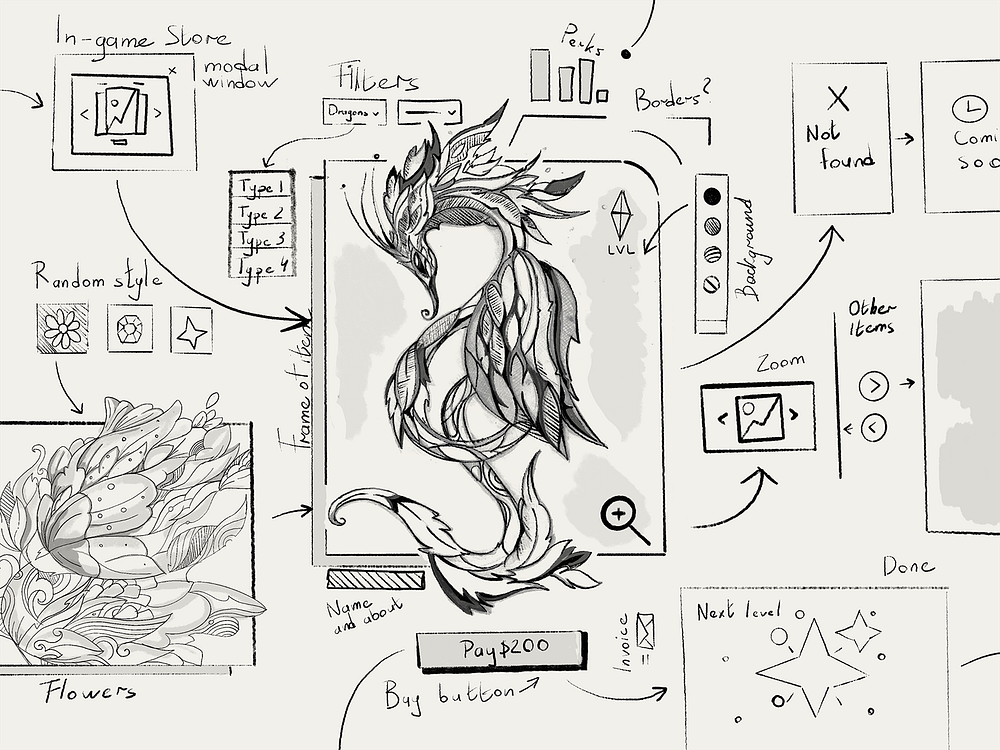 In-game Store
modal
window
Filters
Dragons
Type 1
Type 2
Type 3
Type 4
Perks
Borders?
Not
found
Comi
soo
LVL
Background
Random style
Frame of item
Other
Items
Zoom
Flowers
Name
and about
Pay $200
Buy button
Invoice
Done
Next level